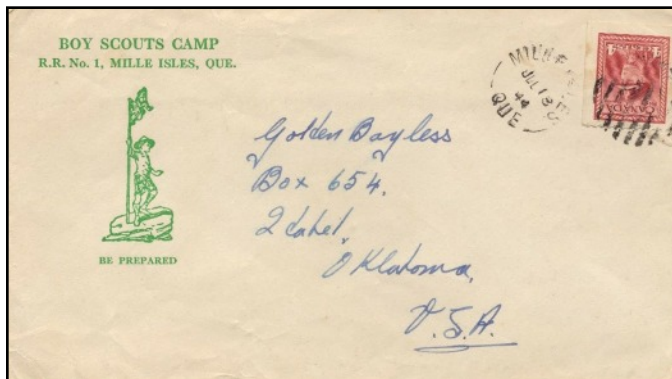 BOY SCOUTS CAMP
R.R. No. 1, MILLE ISLES, QUE.
BE PREPARED
MILLE ISLES
JUL 18
44
QUE
CANADA
Golden Bayless
Box 654.
Idabel,
Oklatoma,
U.S.A.